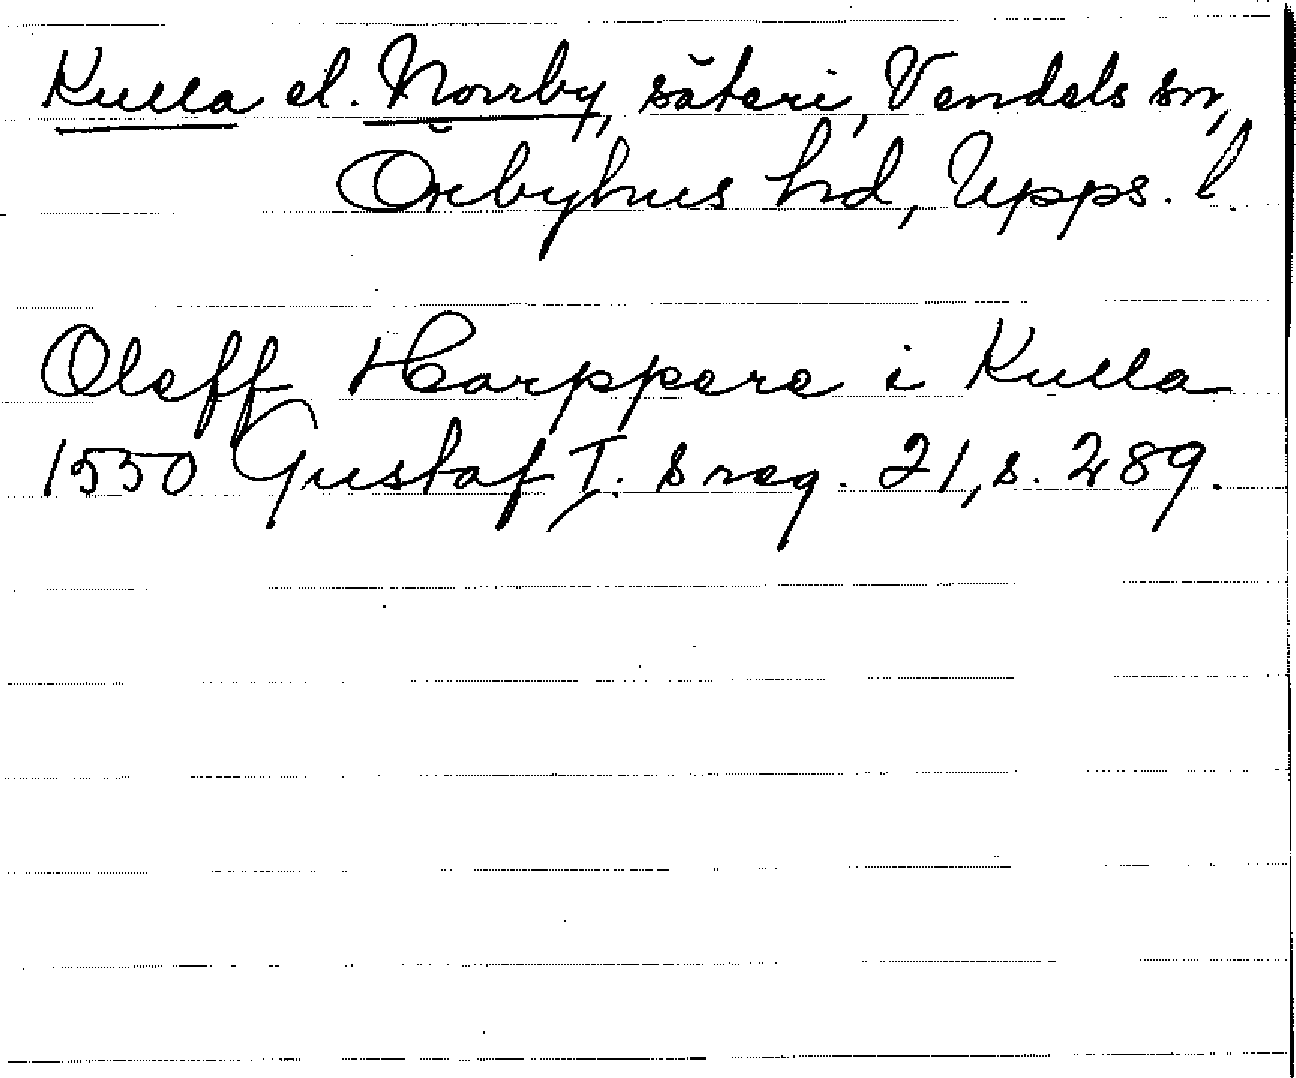 Kulla el. Norrby, säteri, Vendels sn,
Örbyhus hd, Upps. l.
Oleff Harppere i Kulla
1550 Gustaf I. s reg. 21, s. 289.